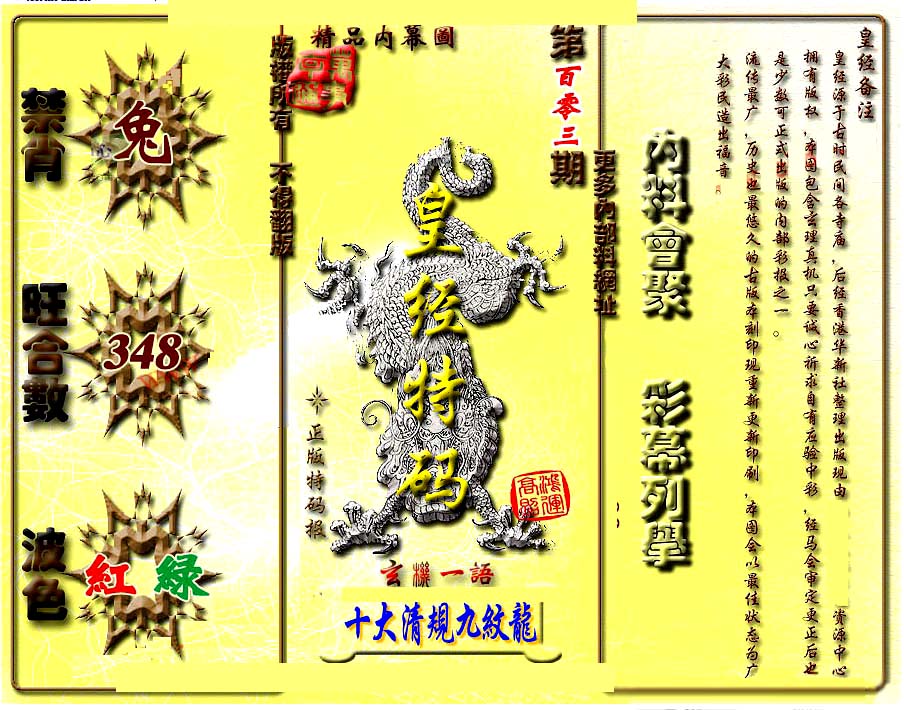 皇经备注
皇经源于古时民间各寺庙，后经香港华新社整理出版现由 资源中心
拥有版权，本图包含玄理真机只要诚心祈求自有应验中彩，经马会审定更正后也
是少数可正式出版的内部彩报之一。
流传最广，历史也最悠久的古版本刻印现重新更新印刷，本图会以最佳状态为广
大彩民造出福音
内料會聚 彩幕列舉
更多內部料網址
第百零三期
精品内幕圖
皇经特码
正版特码报
鸿運高照
玄機一語
十大清規九紋龍
版權所有 不得翻版
禁肖
兔
旺合數
348
波色
紅 緑